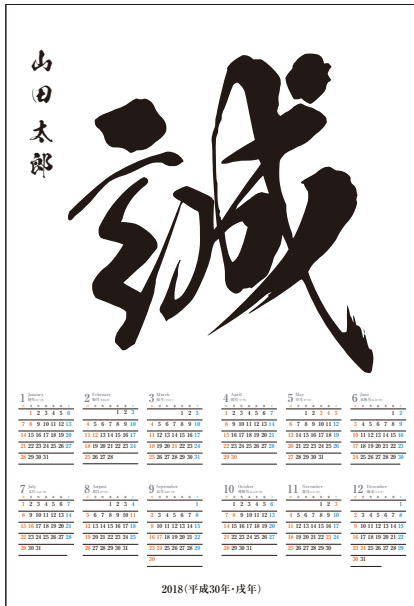 山田太郎
誠
1 January
7 8 9 10 11 12 13
14 15 16 17 18 19 20
21 22 23 24 25 26 27
28 29 30 31
2 February
1 2 3
4 5 6 7 8 9 10
11 12 13 14 15 16 17
18 19 20 21 22 23 24
25 26 27 28
3 March
1 2 3
4 5 6 7 8 9 10
11 12 13 14 15 16 17
18 19 20 21 22 23 24
25 26 27 28 29 30 31
4 April
1 2 3 4 5 6 7
8 9 10 11 12 13 14
15 16 17 18 19 20 21
22 23 24 25 26 27 28
29 30
5 May
1 2 3 4 5
6 7 8 9 10 11 12
13 14 15 16 17 18 19
20 21 22 23 24 25 26
27 28 29 30 31
6 June
1 2
3 4 5 6 7 8 9
10 11 12 13 14 15 16
17 18 19 20 21 22 23
24 25 26 27 28 29 30
7 July
1 2 3 4 5 6 7
8 9 10 11 12 13 14
15 16 17 18 19 20 21
22 23 24 25 26 27 28
29 30 31
8 August
1 2 3 4
5 6 7 8 9 10 11
12 13 14 15 16 17 18
19 20 21 22 23 24 25
26 27 28 29 30 31
9 September
1
2 3 4 5 6 7 8
9 10 11 12 13 14 15
16 17 18 19 20 21 22
23 24 25 26 27 28 29
30
10 October
1 2 3 4 5 6
7 8 9 10 11 12 13
14 15 16 17 18 19 20
21 22 23 24 25 26 27
28 29 30 31
11 November
1 2 3
4 5 6 7 8 9 10
11 12 13 14 15 16 17
18 19 20 21 22 23 24
25 26 27 28 29 30
12 December
1
2 3 4 5 6 7 8
9 10 11 12 13 14 15
16 17 18 19 20 21 22
23 24 25 26 27 28 29
30 31
2018(平成30年・戌年)